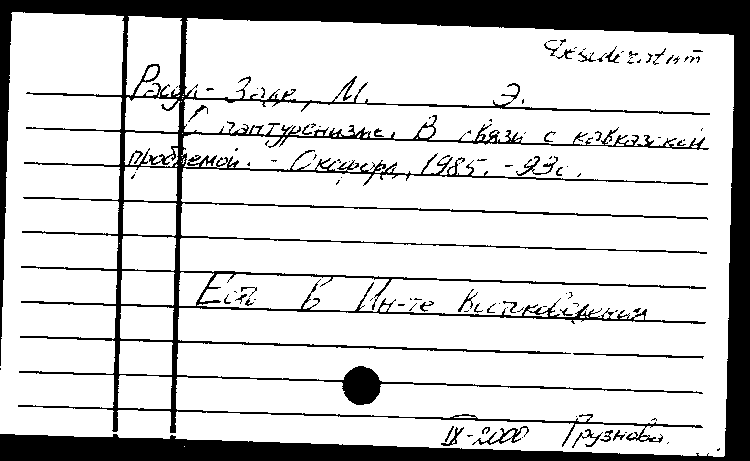 Desideratum
Расул-Заде, М. Э.
О пантуранизме. В связи с кавказской
проблемой. - Оксфорд, 1985. - 93с.
Есть в Ин-те Востоковедения
IX-2000 Грузнова.